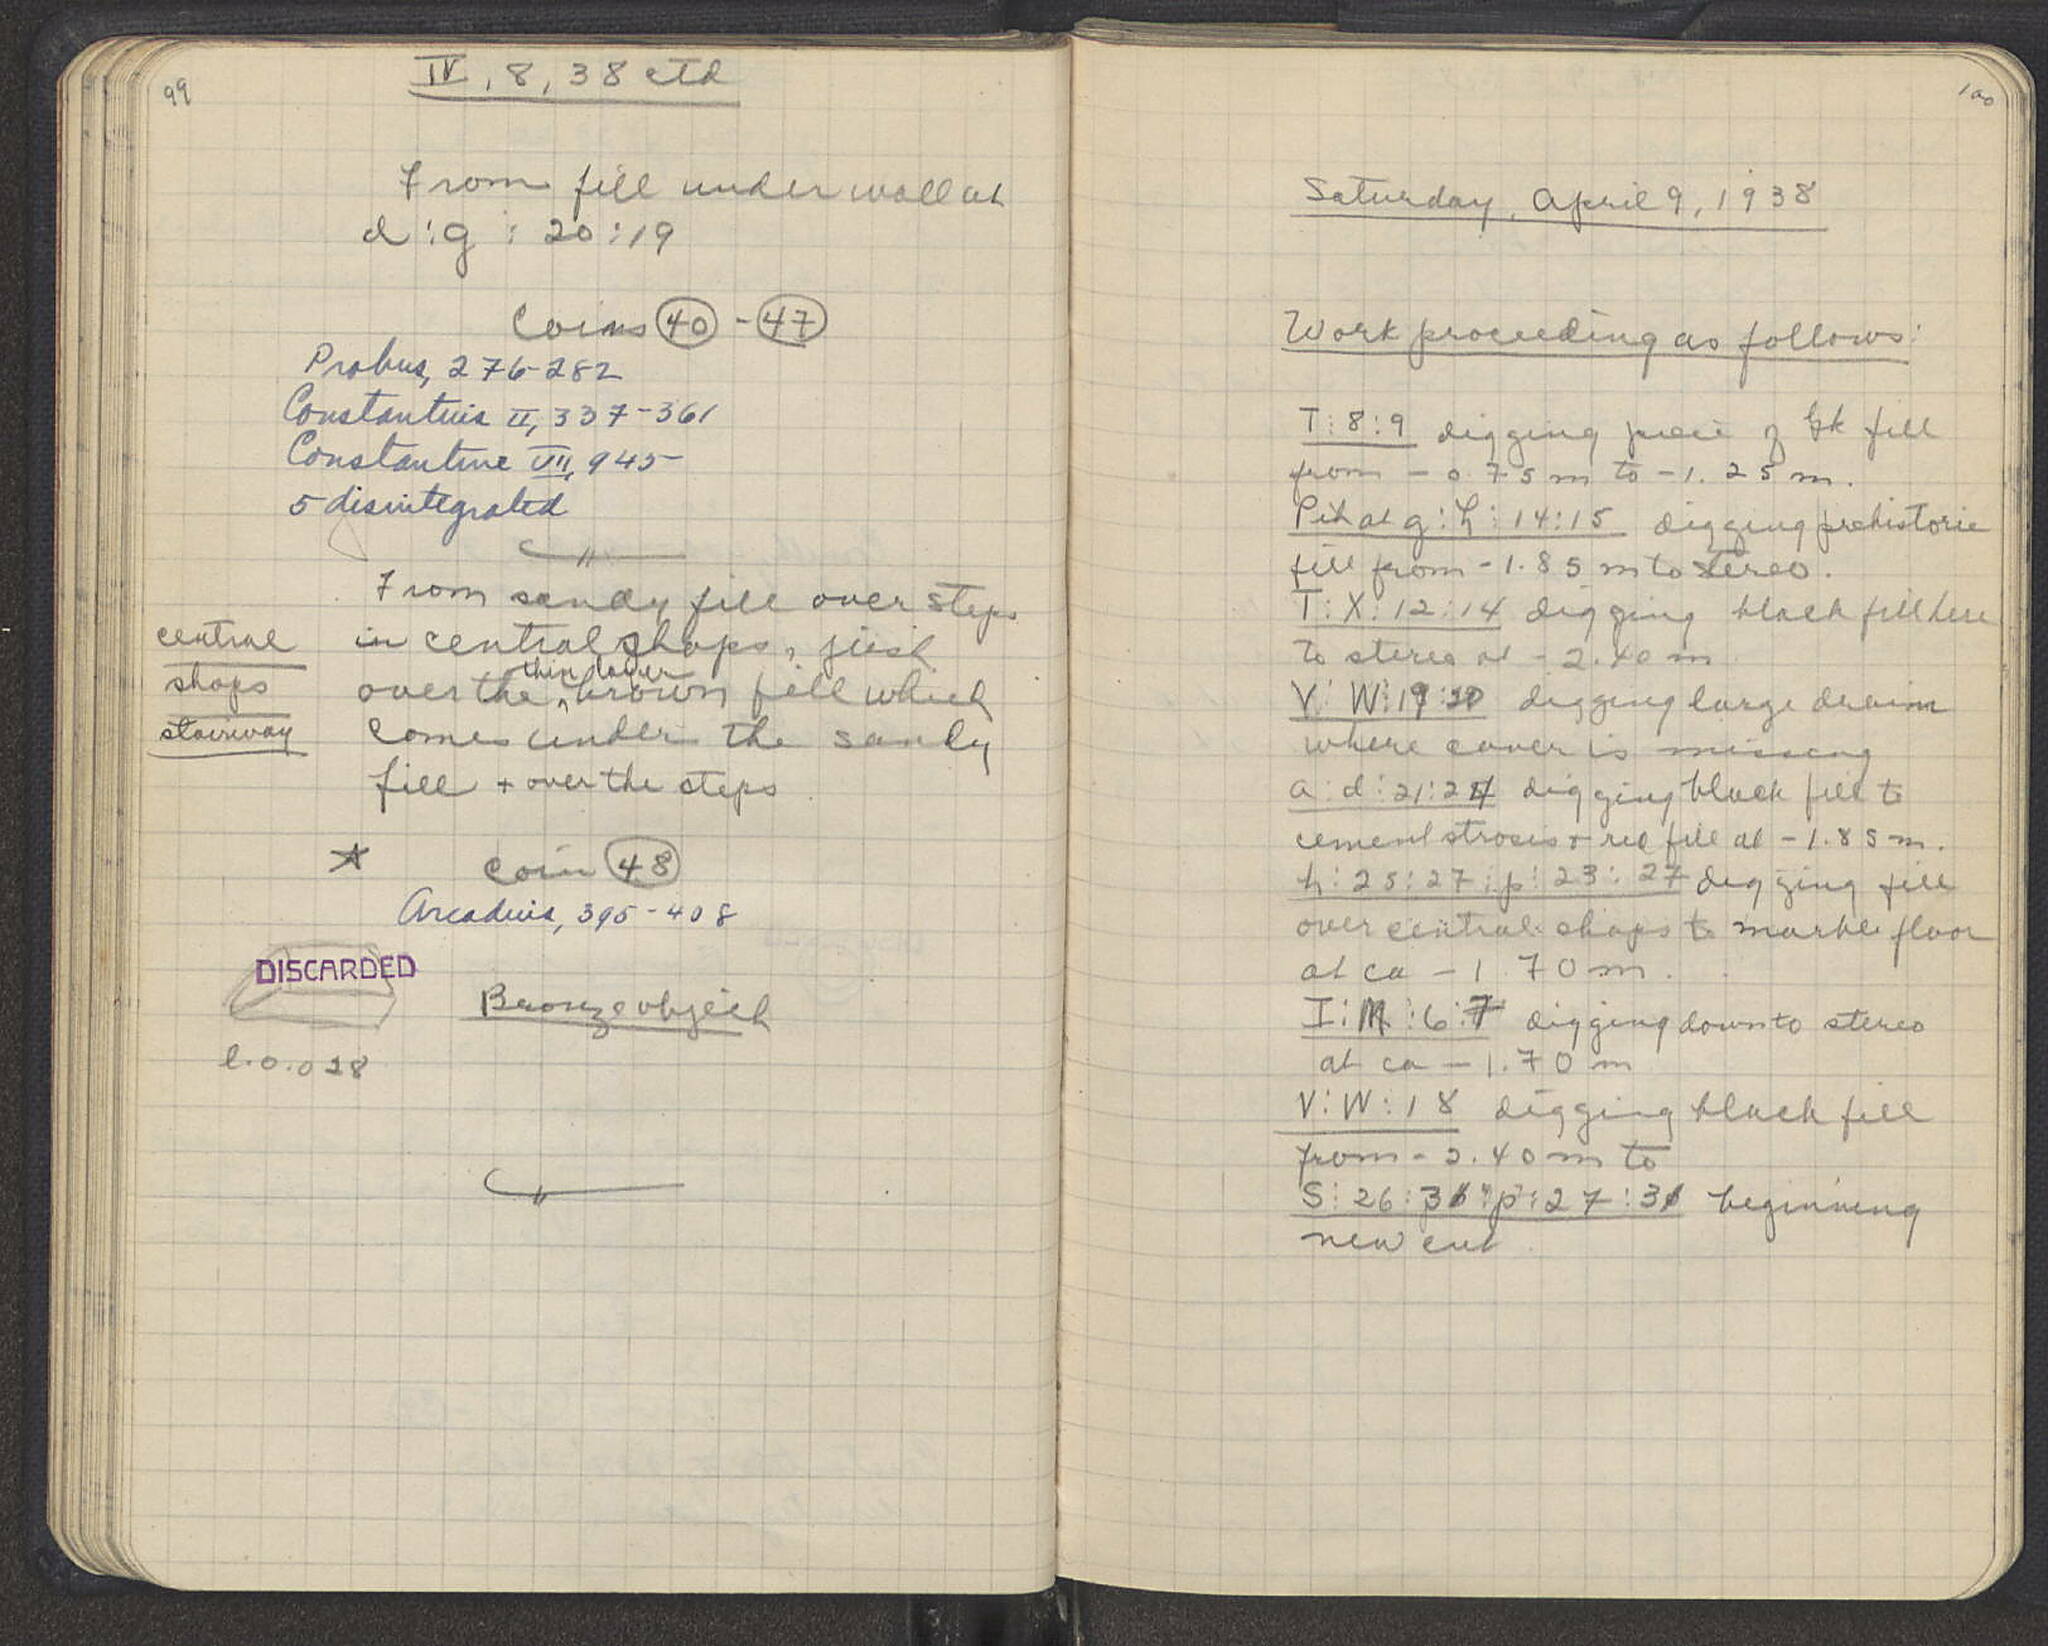 99
IV, 8, 38 ctd
From fill under wall at
d:g : 20:19
Coins 40 - 47
Probus, 276-282
Constantius II, 337-361
Constantine VII, 945
5 disintegrated
From sandy fill over steps
central
in central shops, just
shops
thin layer
over the brown fill which
stairway
comes under the sandy
fill + over the steps
coin 48
Arcadius, 395-408
DISCARDED
Bronze object
l.0.028
100
Saturday, April 9, 1938
Work proceeding as follows:
T:8:9 digging piece of Gk fill
from -0.75m to -1.25m.
Pit at g:h:14:15 digging prehistoric
fill from -1.85m to stereo.
T:X:12:14 digging black fill here
to stereo at -2.40m
V:W:19:20 digging large drain
where cover is missing
a:d:21:24 digging black fill to
cement strosis + red fill at -1.85m.
h:25:27:p:23:27 digging fill
over central shops to marble floor
at ca -1.70m.
I:M:6:7 digging down to stereo
at ca -1.70m
V:W:18 digging black fill
from -2.40m to
S:26: :p:27: beginning
new cut